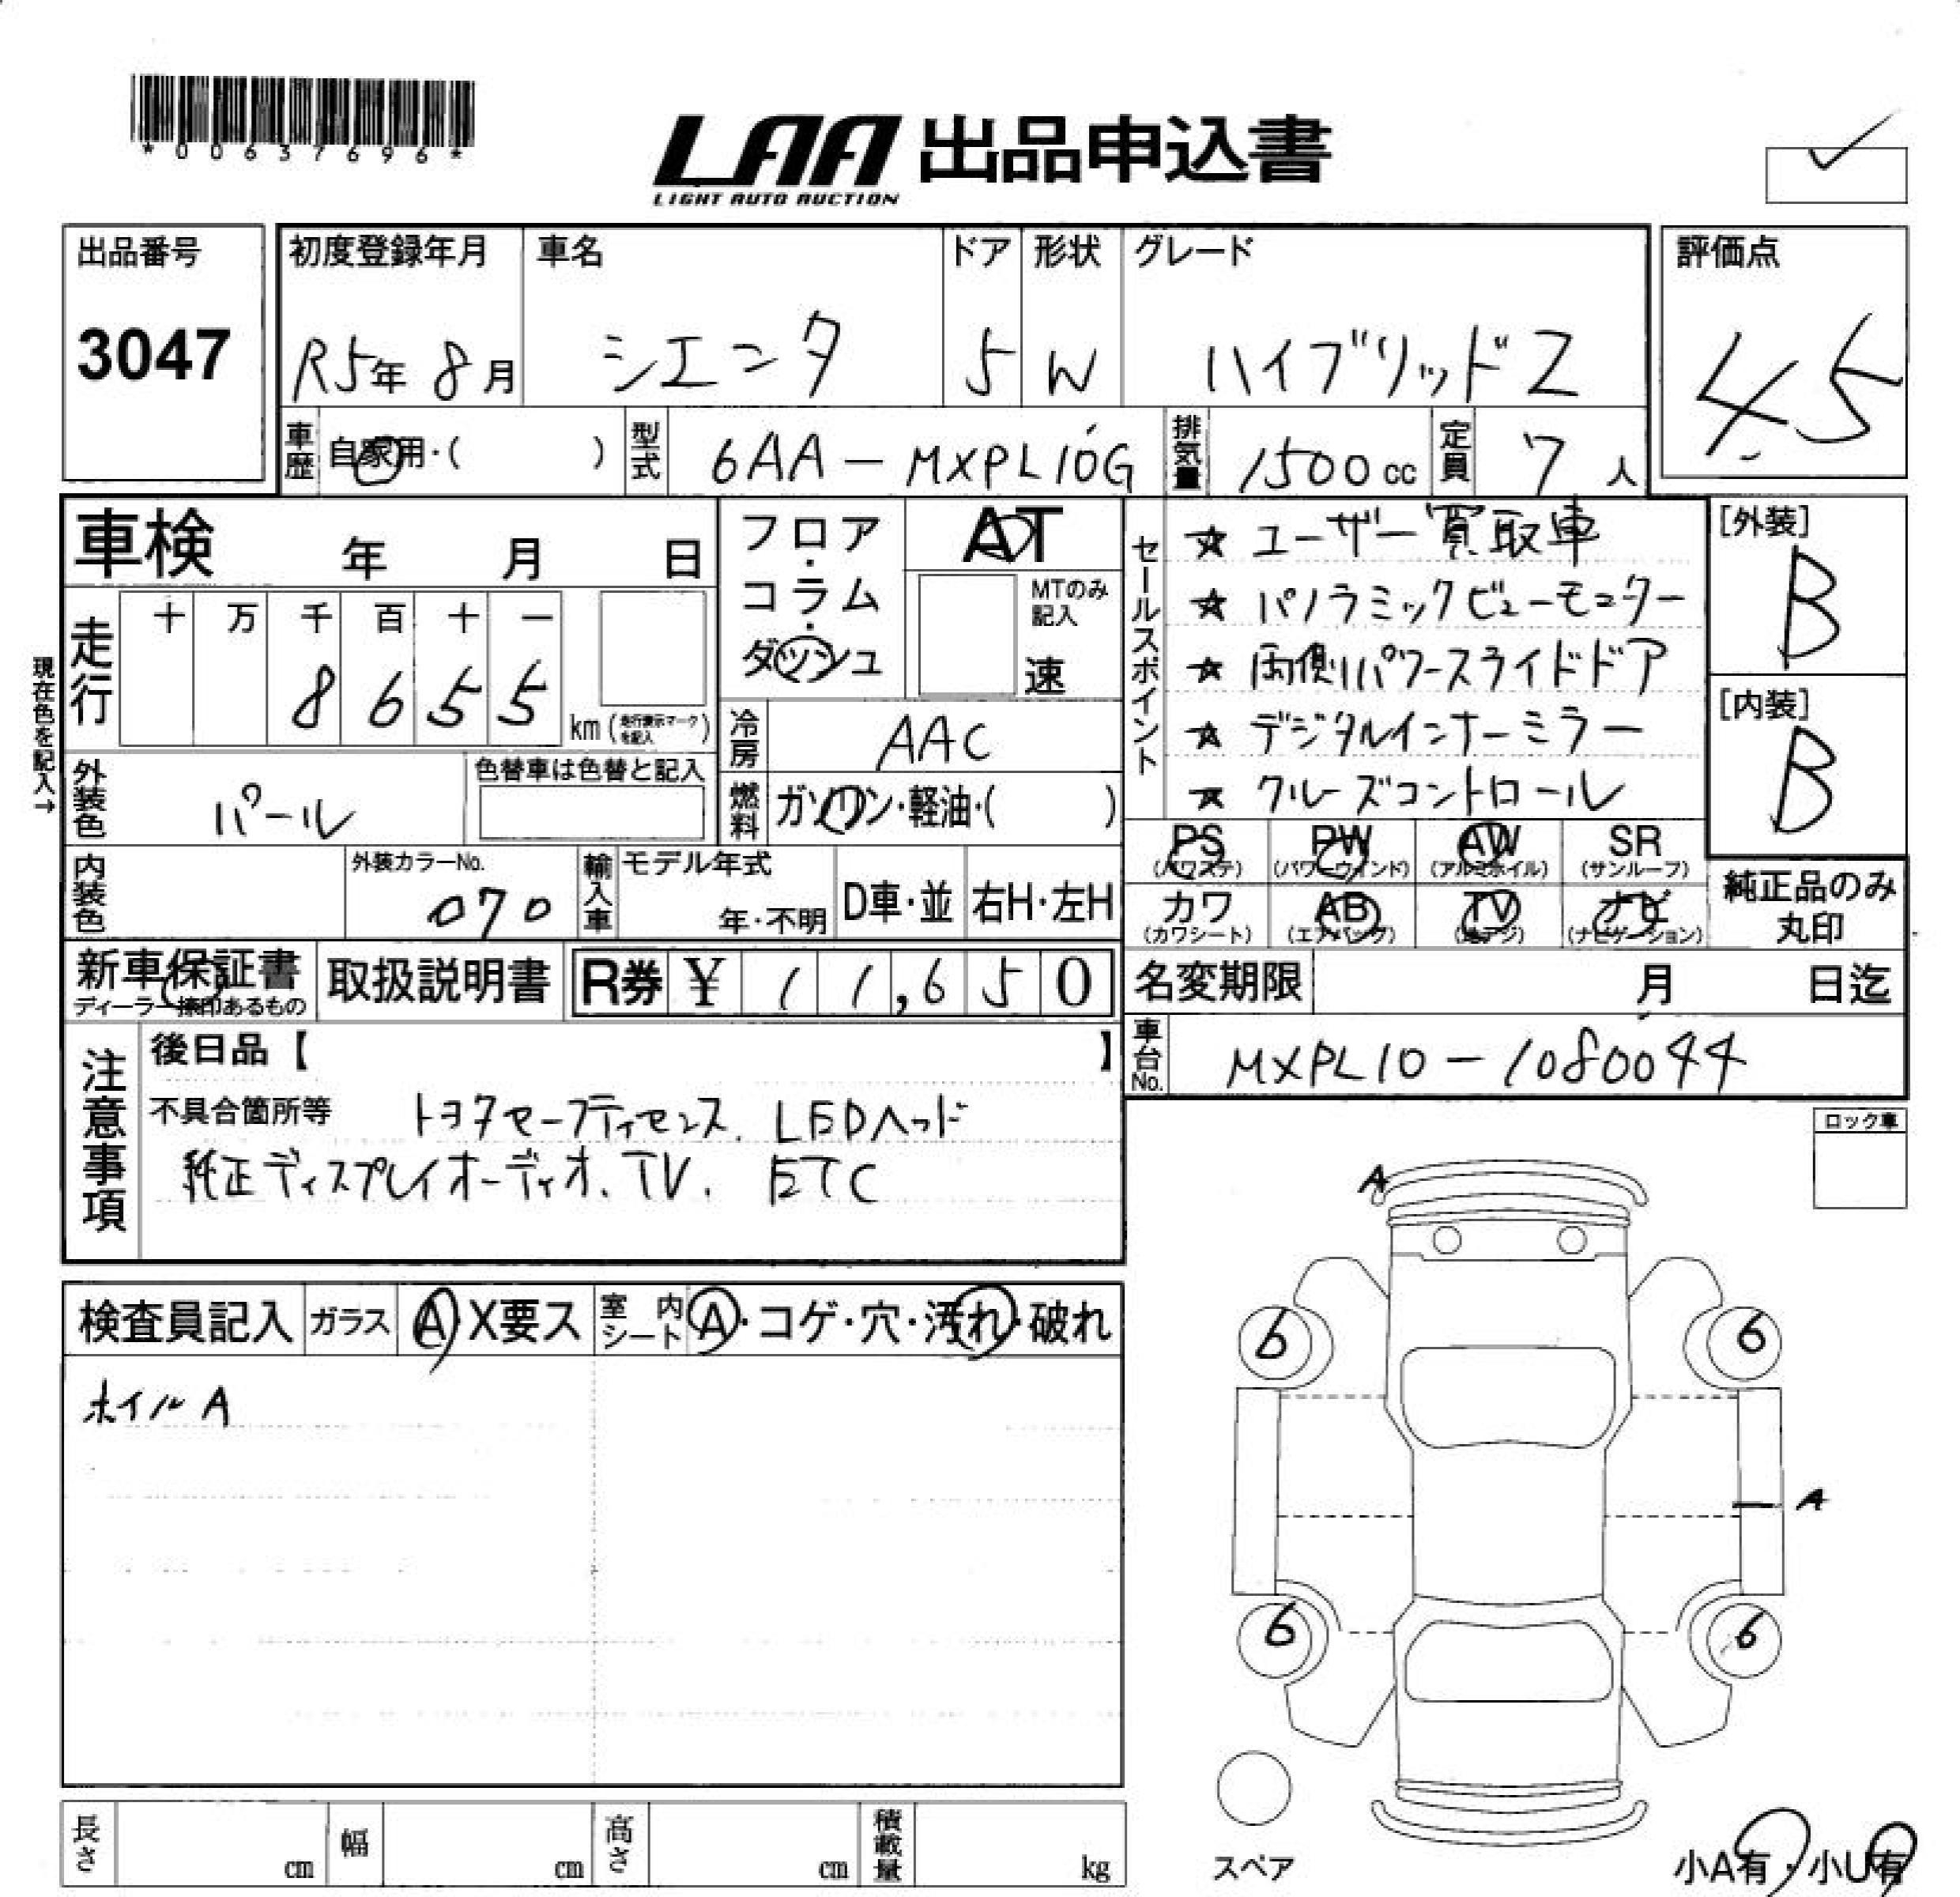 *00637696*
LAA 出品申込書
LIGHT AUTO AUCTION
出品番号
3047
初度登録年月
R5年 8月
車名
シエンタ
ドア
5
形状
W
グレード
ハイブリッドZ
評価点
4.5
車歴
自家用・( )
型式
6AA-MXPL10G
排気量
1500cc
定員
7人
車検 年 月 日
フロア・コラム・ダッシュ
AT
MTのみ記入
速
セールスポイント
☆ ユーザー買取車
☆ パノラミックビューモニター
☆ 両側パワースライドドア
☆ デジタルインナーミラー
☆ クルーズコントロール
[外装]
B
[内装]
B
現在色を記入→
走行
十 万 千 百 十 一
8 6 5 5
km (走行表示マークを記入)
冷房
AAC
外装色
パール
色替車は色替と記入
燃料
ガソリン・軽油・( )
PS (パワステ)
PW (パワーウィンド)
AW (アルミホイル)
SR (サンルーフ)
カワ (カワシート)
AB (エアバック)
TV (地デジ)
ナビ (ナビゲーション)
純正品のみ丸印
内装色
外装カラーNo.
070
輸入車
モデル年式
年・不明
D車・並
右H・左H
新車保証書
ディーラー捺印あるもの
取扱説明書
R券 ¥ 11,650
名変期限 月 日迄
車台No.
MXPL10-1080044
注意事項
後日品【 】
不具合箇所等 トヨタセーフティセンス. LEDヘッド
純正ディスプレイオーディオ. TV. ETC
ロック車
A
検査員記入
ガラス
A・X要ス
室内シート
A・コゲ・穴・汚れ・破れ
ホイルA
6
6
A
6
6
スペア
小A有・小U有
長さ cm
幅 cm
高さ cm
積載量 kg